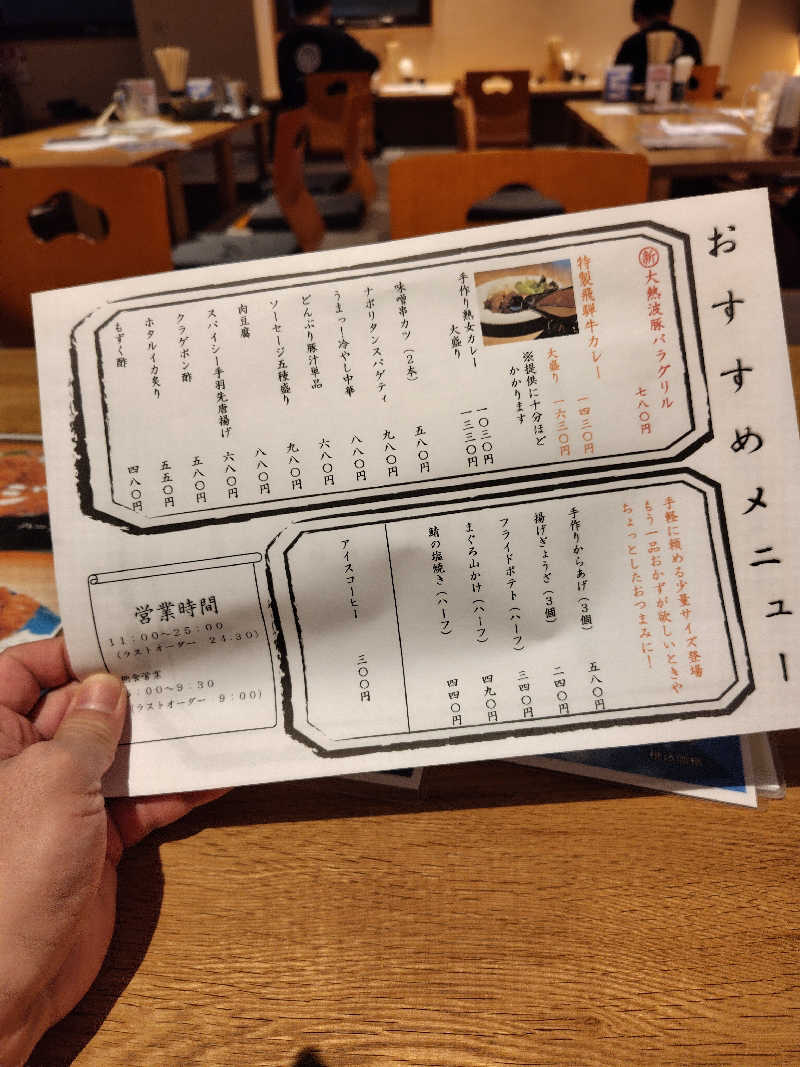 おすすめメニュー
㊟新 大熱波豚バラグリル 七八〇円
特製飛騨牛カレー 一四三〇円
大盛り 一六三〇円
※提供に十分ほど
かかります
手作り熟女カレー 一〇三〇円
大盛り 一二三〇円
味噌串カツ(2本) 五八〇円
ナポリタンスパゲティ 九八〇円
うまっー冷やし中華 八八〇円
どんぶり豚汁単品 六八〇円
ソーセージ五種盛り 九八〇円
肉豆腐 八八〇円
スパイシー手羽先唐揚げ 六八〇円
クラゲポン酢 五八〇円
ホタルイカ炙り 五五〇円
もずく酢 四八〇円
手軽に頼める少量サイズ登場
もう一品おかずが欲しいときや
ちょっとしたおつまみに!
手作りからあげ(3個) 五八〇円
揚げぎょうざ(3個) 二四〇円
フライドポテト(ハーフ) 三四〇円
まぐろ山かけ(ハーフ) 四九〇円
鯖の塩焼き(ハーフ) 四四〇円
アイスコーヒー 三〇〇円
営業時間
11:00~25:00
(ラストオーダー 24.30)
朝食営業
:00~9:30
(ラストオーダー 9:00)